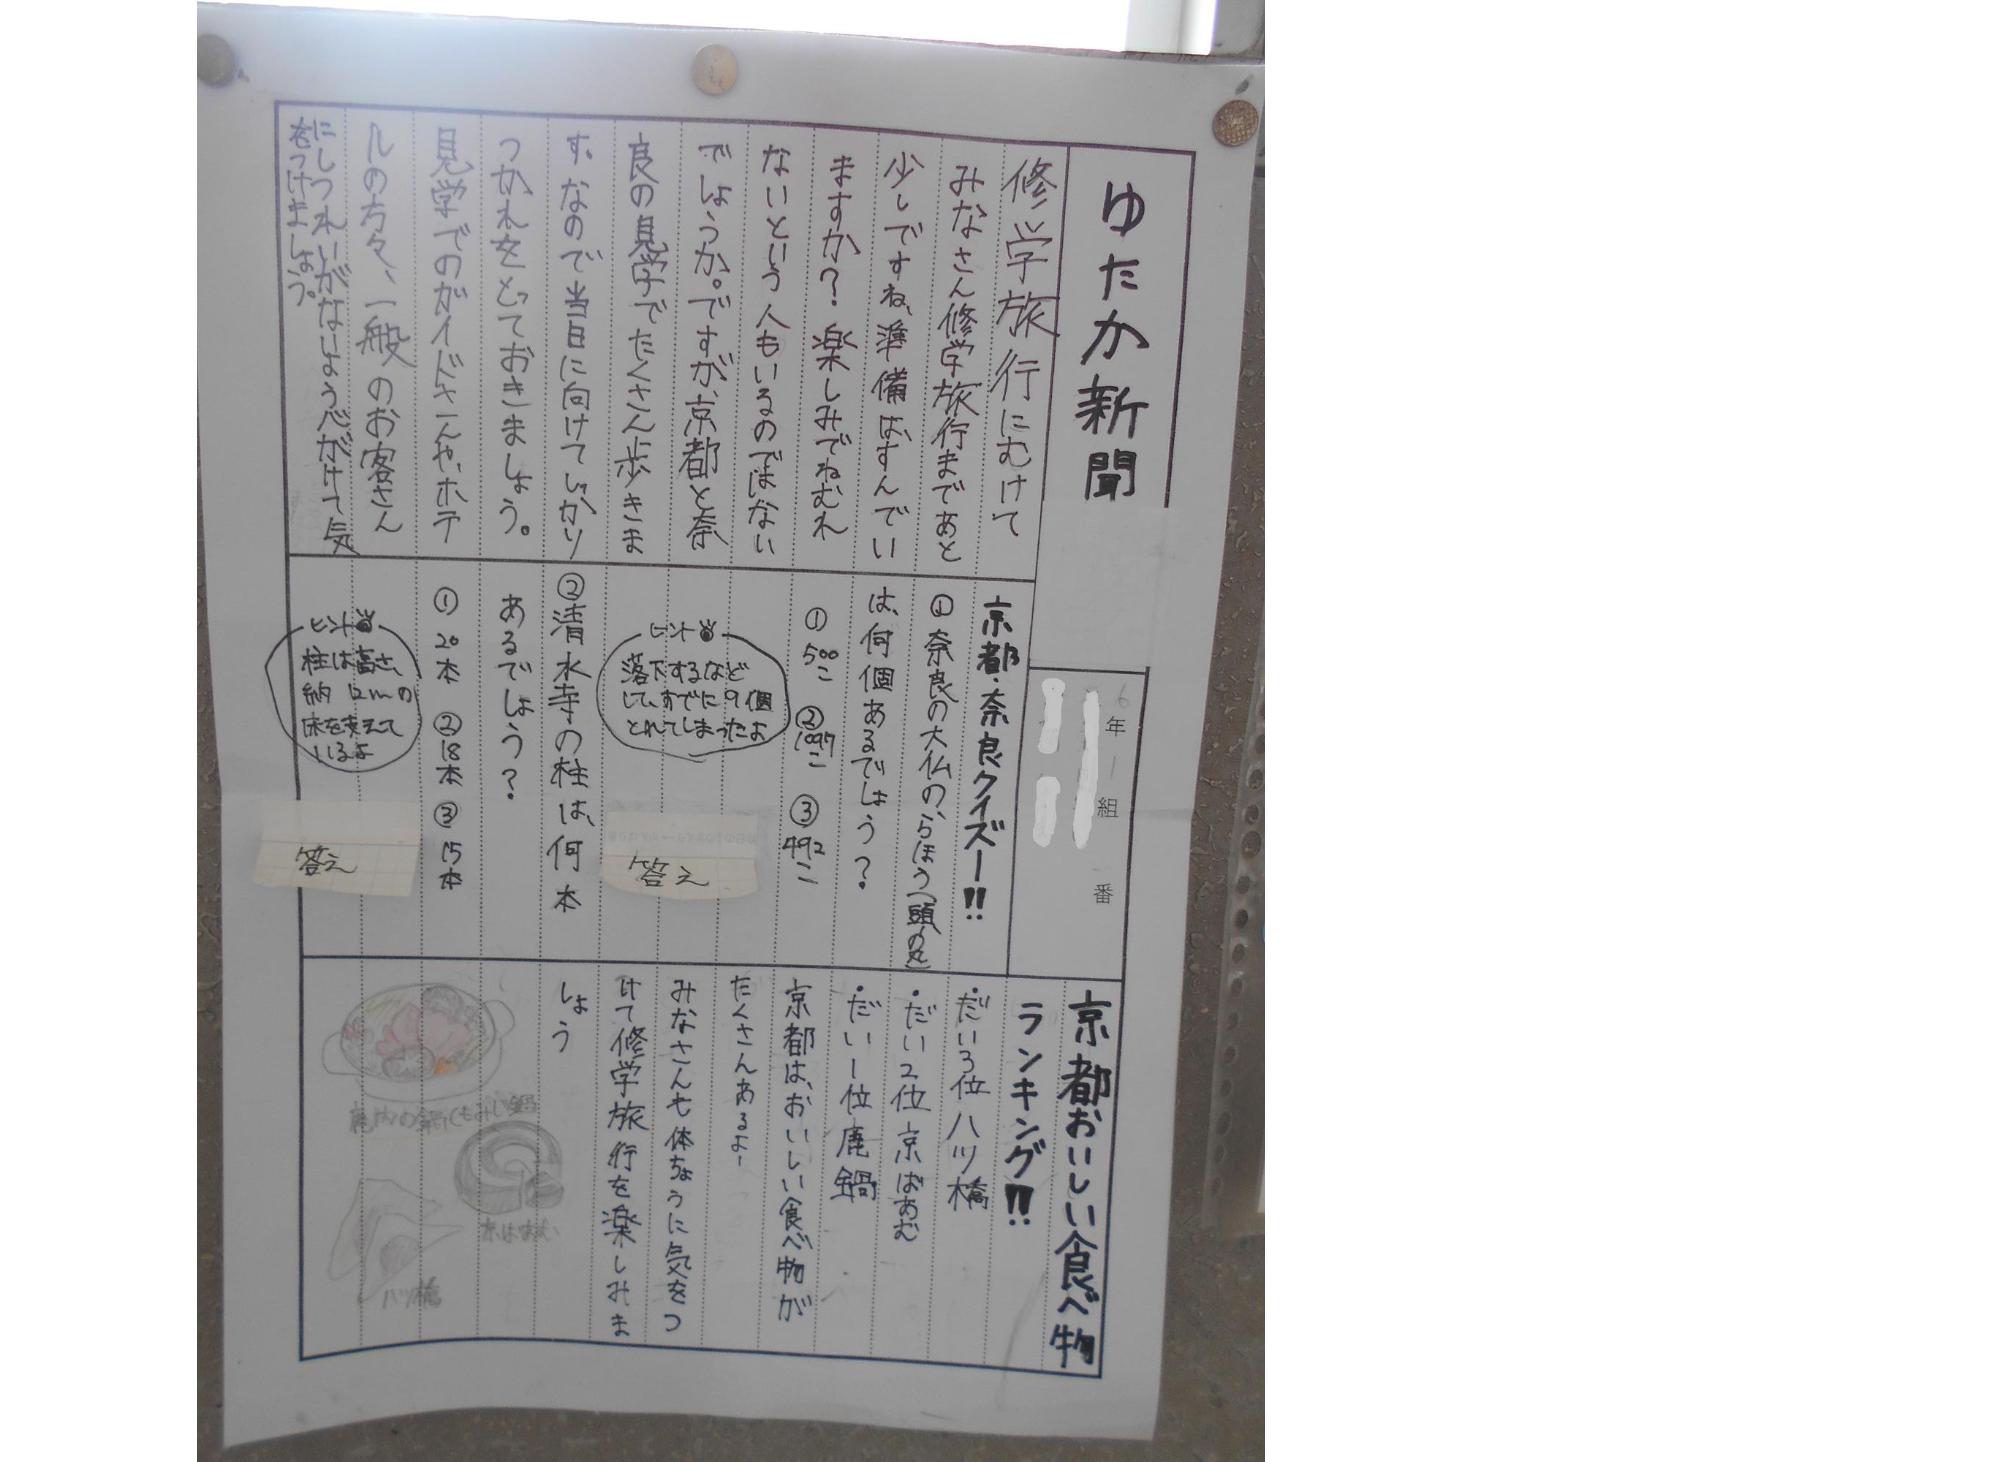 ゆたか新聞
6年1組　番
修学旅行にむけて
みなさん修学旅行まであと
少しですね、準備はすんでい
ますか?楽しみでねむれ
ないという人もいるのではない
でしょうか。ですが、京都と奈
良の見学でたくさん歩きま
す。なので当日に向けてしっかり
つかれをとっておきましょう。
見学でのガイドさんや、ホテ
ルの方々、一般のお客さん
にしつれいがないよう心がけて気
をつけましょう。
京都・奈良クイズー!!
①奈良の大仏の、らほう(頭の丸)
は、何個あるでしょう?
①500こ ②1097こ ③492こ
ヒント
落下するなど
して、すでに9個
とれてしまったよ
答え
②清水寺の柱は、何本
あるでしょう?
①20本 ②18本 ③15本
ヒント
柱は高さ、
納12mの
床を支えて
いるよ
答え
京都おいしい食べ物
ランキング!!
・だい3位 八ツ橋
・だい2位 京ばあむ
・だい1位 鹿鍋
京都は、おいしい食べ物が
たくさんあるよー
みなさんも体ちょうに気をつ
けて修学旅行を楽しみま
しょう
鹿肉の鍋(もみじ鍋
京ばあむ
八ツ橋